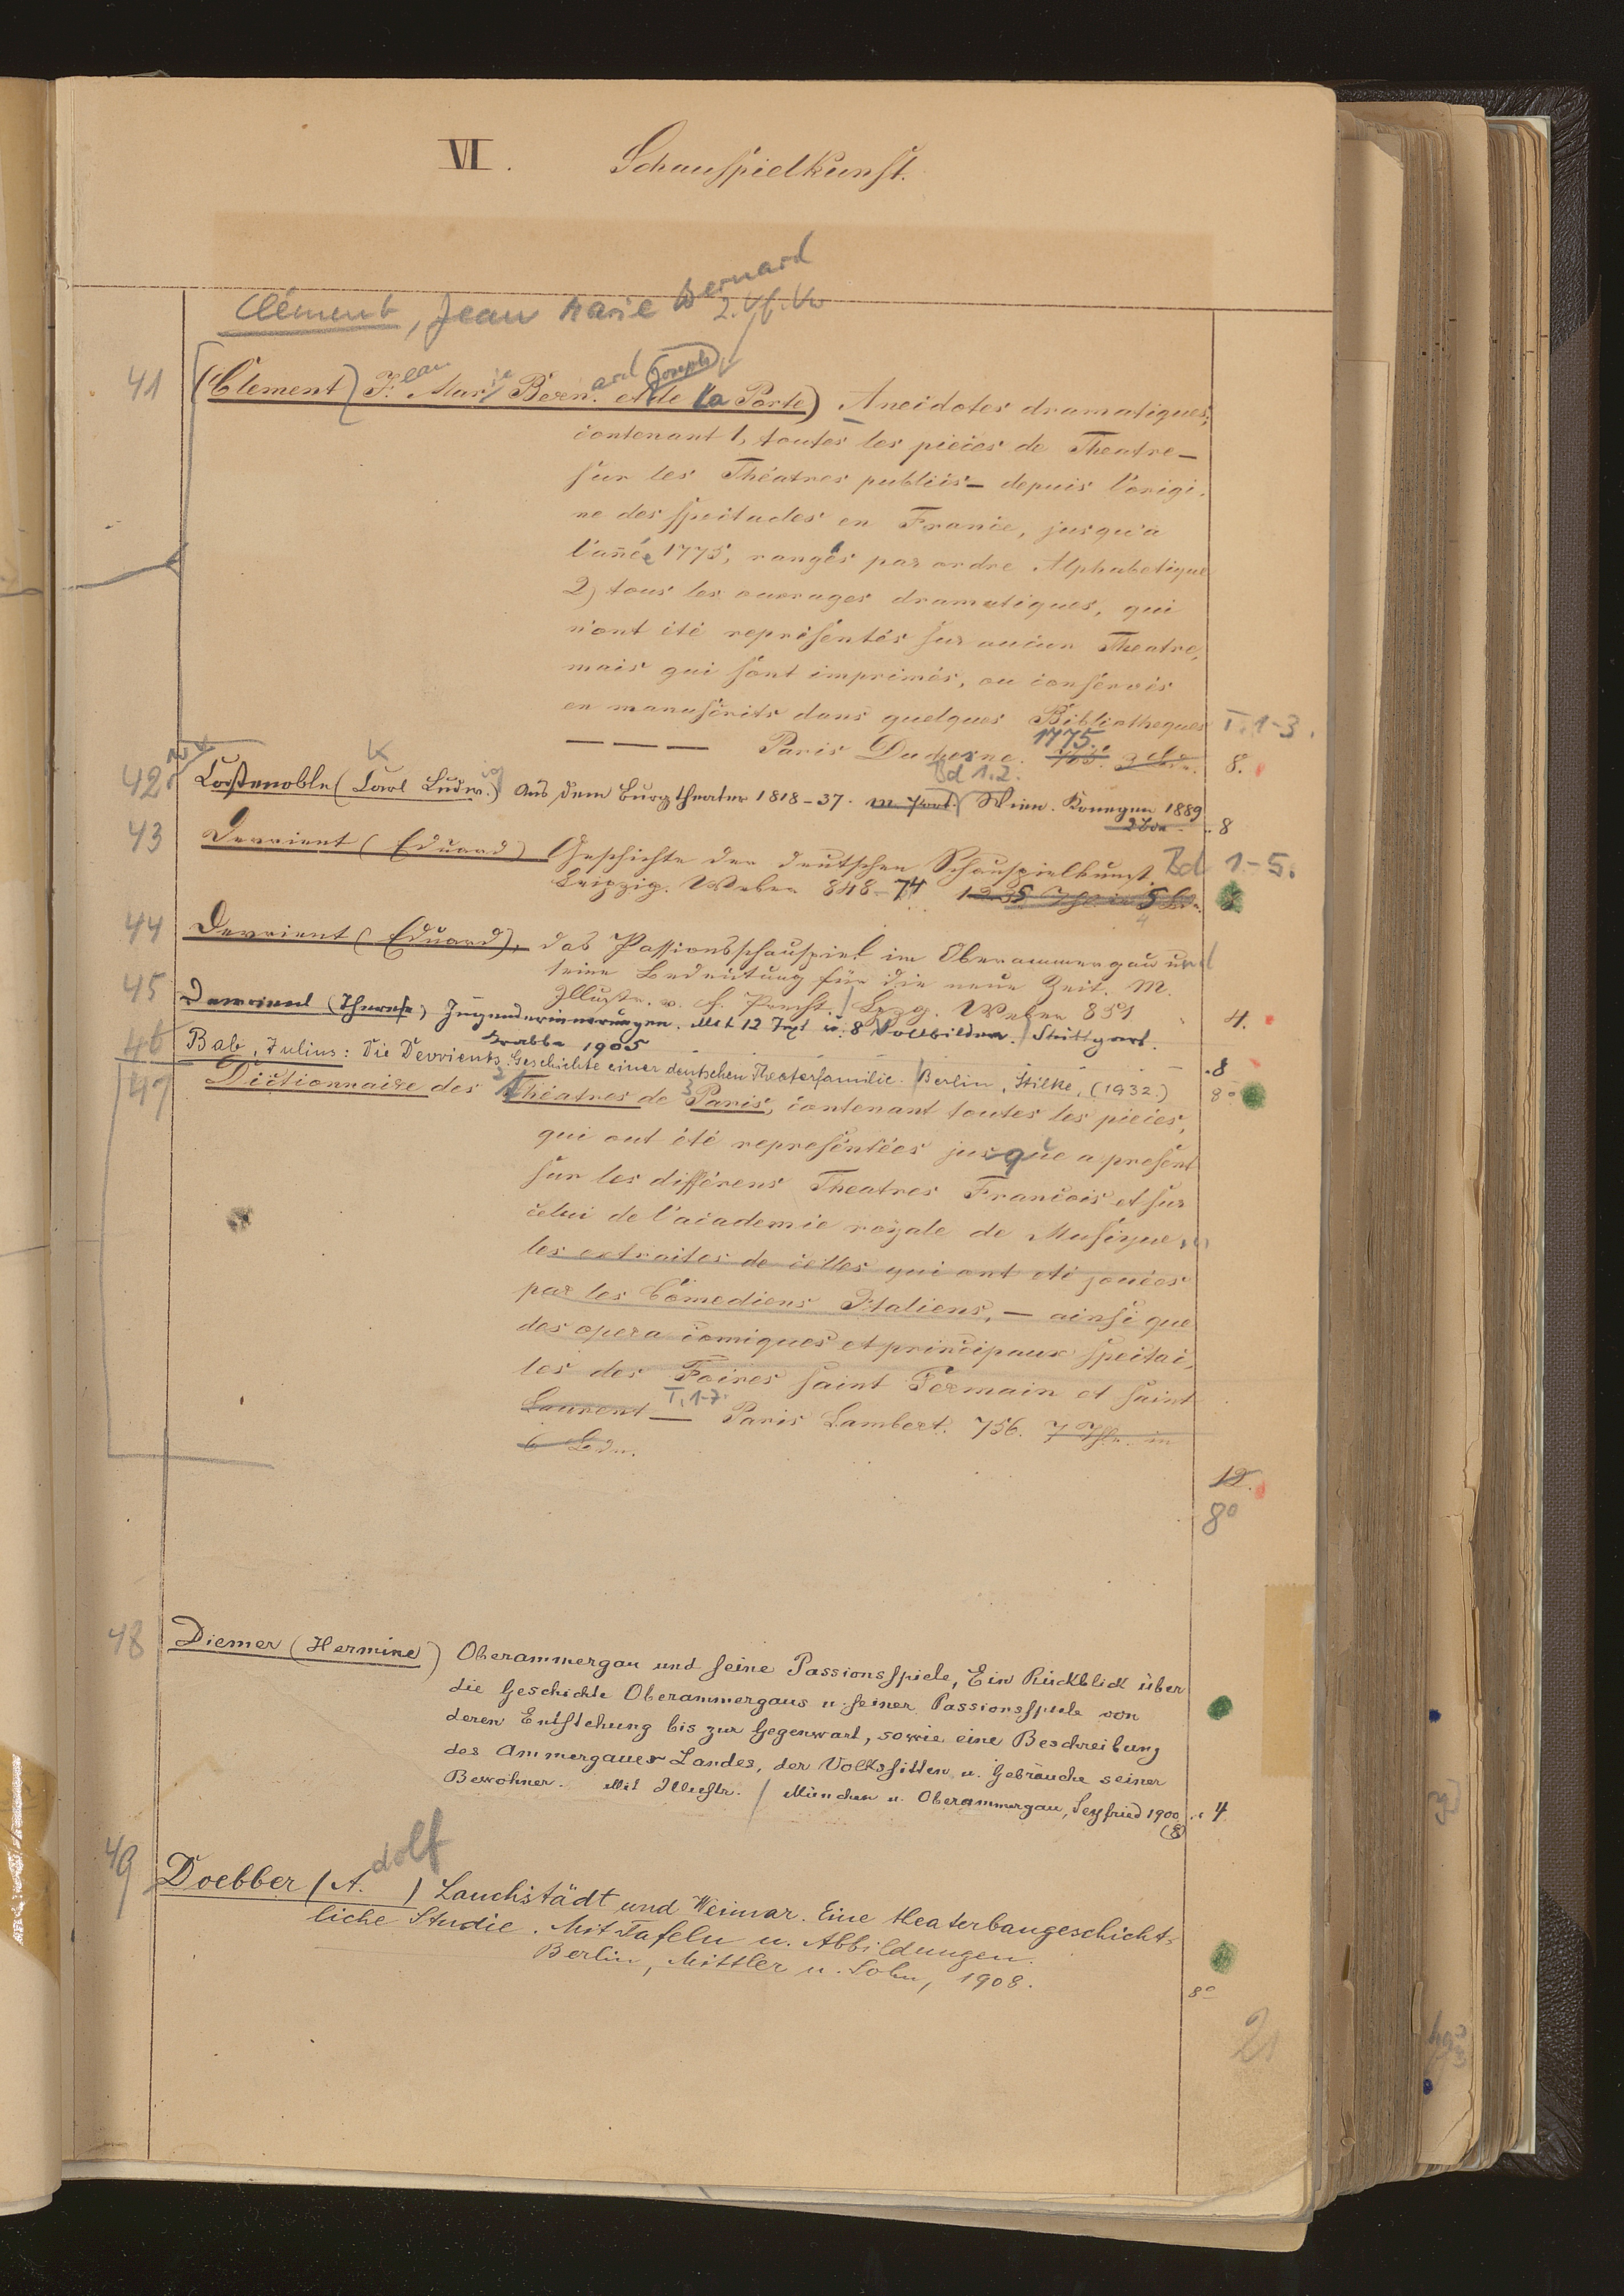 VI. Schauspielkunst.
Clément, Jean Marie Bernard
2. Vf. Vw
41 (Clement) J.ean Marie Bern.ard et de Joseph la Porte) Anecdotes dramatiques;
contenant 1, toutes les pieces de Theatre —
sur les Théatres publics — depuis l'origi-
ne des spectacles en France, jusqu'a
l'année 1775, rangés par ordre Alphabetique
2) tous les ouvrages dramatiques, qui
n'ont été représentés sur aucun Theatre,
mais qui sont imprimés, ou conservés
en manuscrits dans quelques Bibliotheques T. 1-3.
— — — Paris Duchesne. 1775. 8.
42 Costenoble (Carl Ludw.ig) K Aus dem Burgtheater 1818-37. m. Port. Bd 1.2. / Wien. Konegen 1889
2 Bde. 8
43 Devrient (Eduard) Geschichte der deutschen Schauspielkunst. Bd 1-5.
Leipzig. Weber 848-74 8
44 Devrient (Eduard), das Passionsschauspiel in Oberammergau und
seine Bedeutung für die neue Zeit. M.
Illustr. v. F. Pecht. / Lpzg. Weber 851 4.
45 Devrient (Therese) Jugenderinnerungen. Mit 12 Text u. 8 Vollbildern. / Stuttgart.
Krabbe 1905 8
46 Bab, Julius: Die Devrients. Geschichte einer deutschen Theaterfamilie. / Berlin, Stilke, (1932.) 8°
47 Dictionnaire des Théatres de Paris, contenant toutes les pieces,
qui ont été representées jusque a present
sur les différens Theatres Francois et sur
celui de l'academie royale de Musique,
les extraites de celles qui ont eté jouées
par les Comediens Italiens, — ainsi que
des opera comiques et principaux spectac-
les des Foires saint Germain et saint
Laurent — T. 1-7. Paris Lambert. 756. 7 Thle. in
6 Bdn.
12.
8°
48 Diemer (Hermine) Oberammergau und seine Passionsspiele, Ein Rückblick über
die Geschichte Oberammergaus u. seiner Passionsspiele von
deren Entstehung bis zur Gegenwart, sowie eine Beschreibung
des Ammergauer Landes, der Volkssitten u. Gebräuche seiner
Bewohner. Mit Illustr. / München u. Oberammergau, Seyfried 1900 4
(8)
49 Doebber (A.dolf) Lauchstädt und Weimar. Eine theaterbaugeschicht-
liche Studie. Mit Tafeln u. Abbildungen.
Berlin, Mittler u. Sohn, 1908. 8°